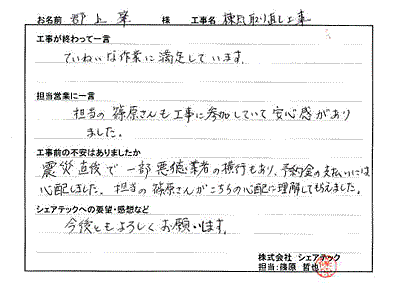 お名前 郡上 様 工事名 棟瓦取り直し工事
工事が終わって一言
ていねいな作業に満足しています。
担当営業に一言
担当の篠原さんも工事に参加していて安心感があり
ました。
工事前の不安はありましたか
震災直後で一部悪徳業者の横行もあり、予約金の支払いには
心配しました。担当の篠原さんがこちらの心配に理解してもらえました。
シェアテックへの要望・感想など
今後ともよろしくお願いします。
株式会社 シェアテック
担当:篠原 哲也